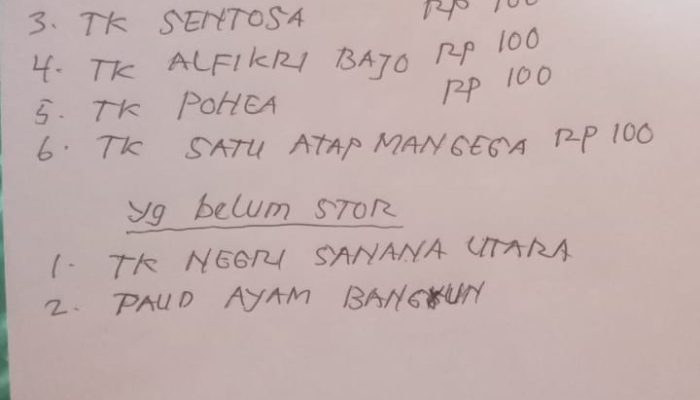 3. TK SENTOSA RP 100
4. TK ALFIKRI BAJO RP 100
5. TK POHEA RP 100
6. TK SATU ATAP MANGEGA RP 100
yg belum STOR
1. TK NEGRI SANANA UTARA
2. PAUD AYAM BANGKUN